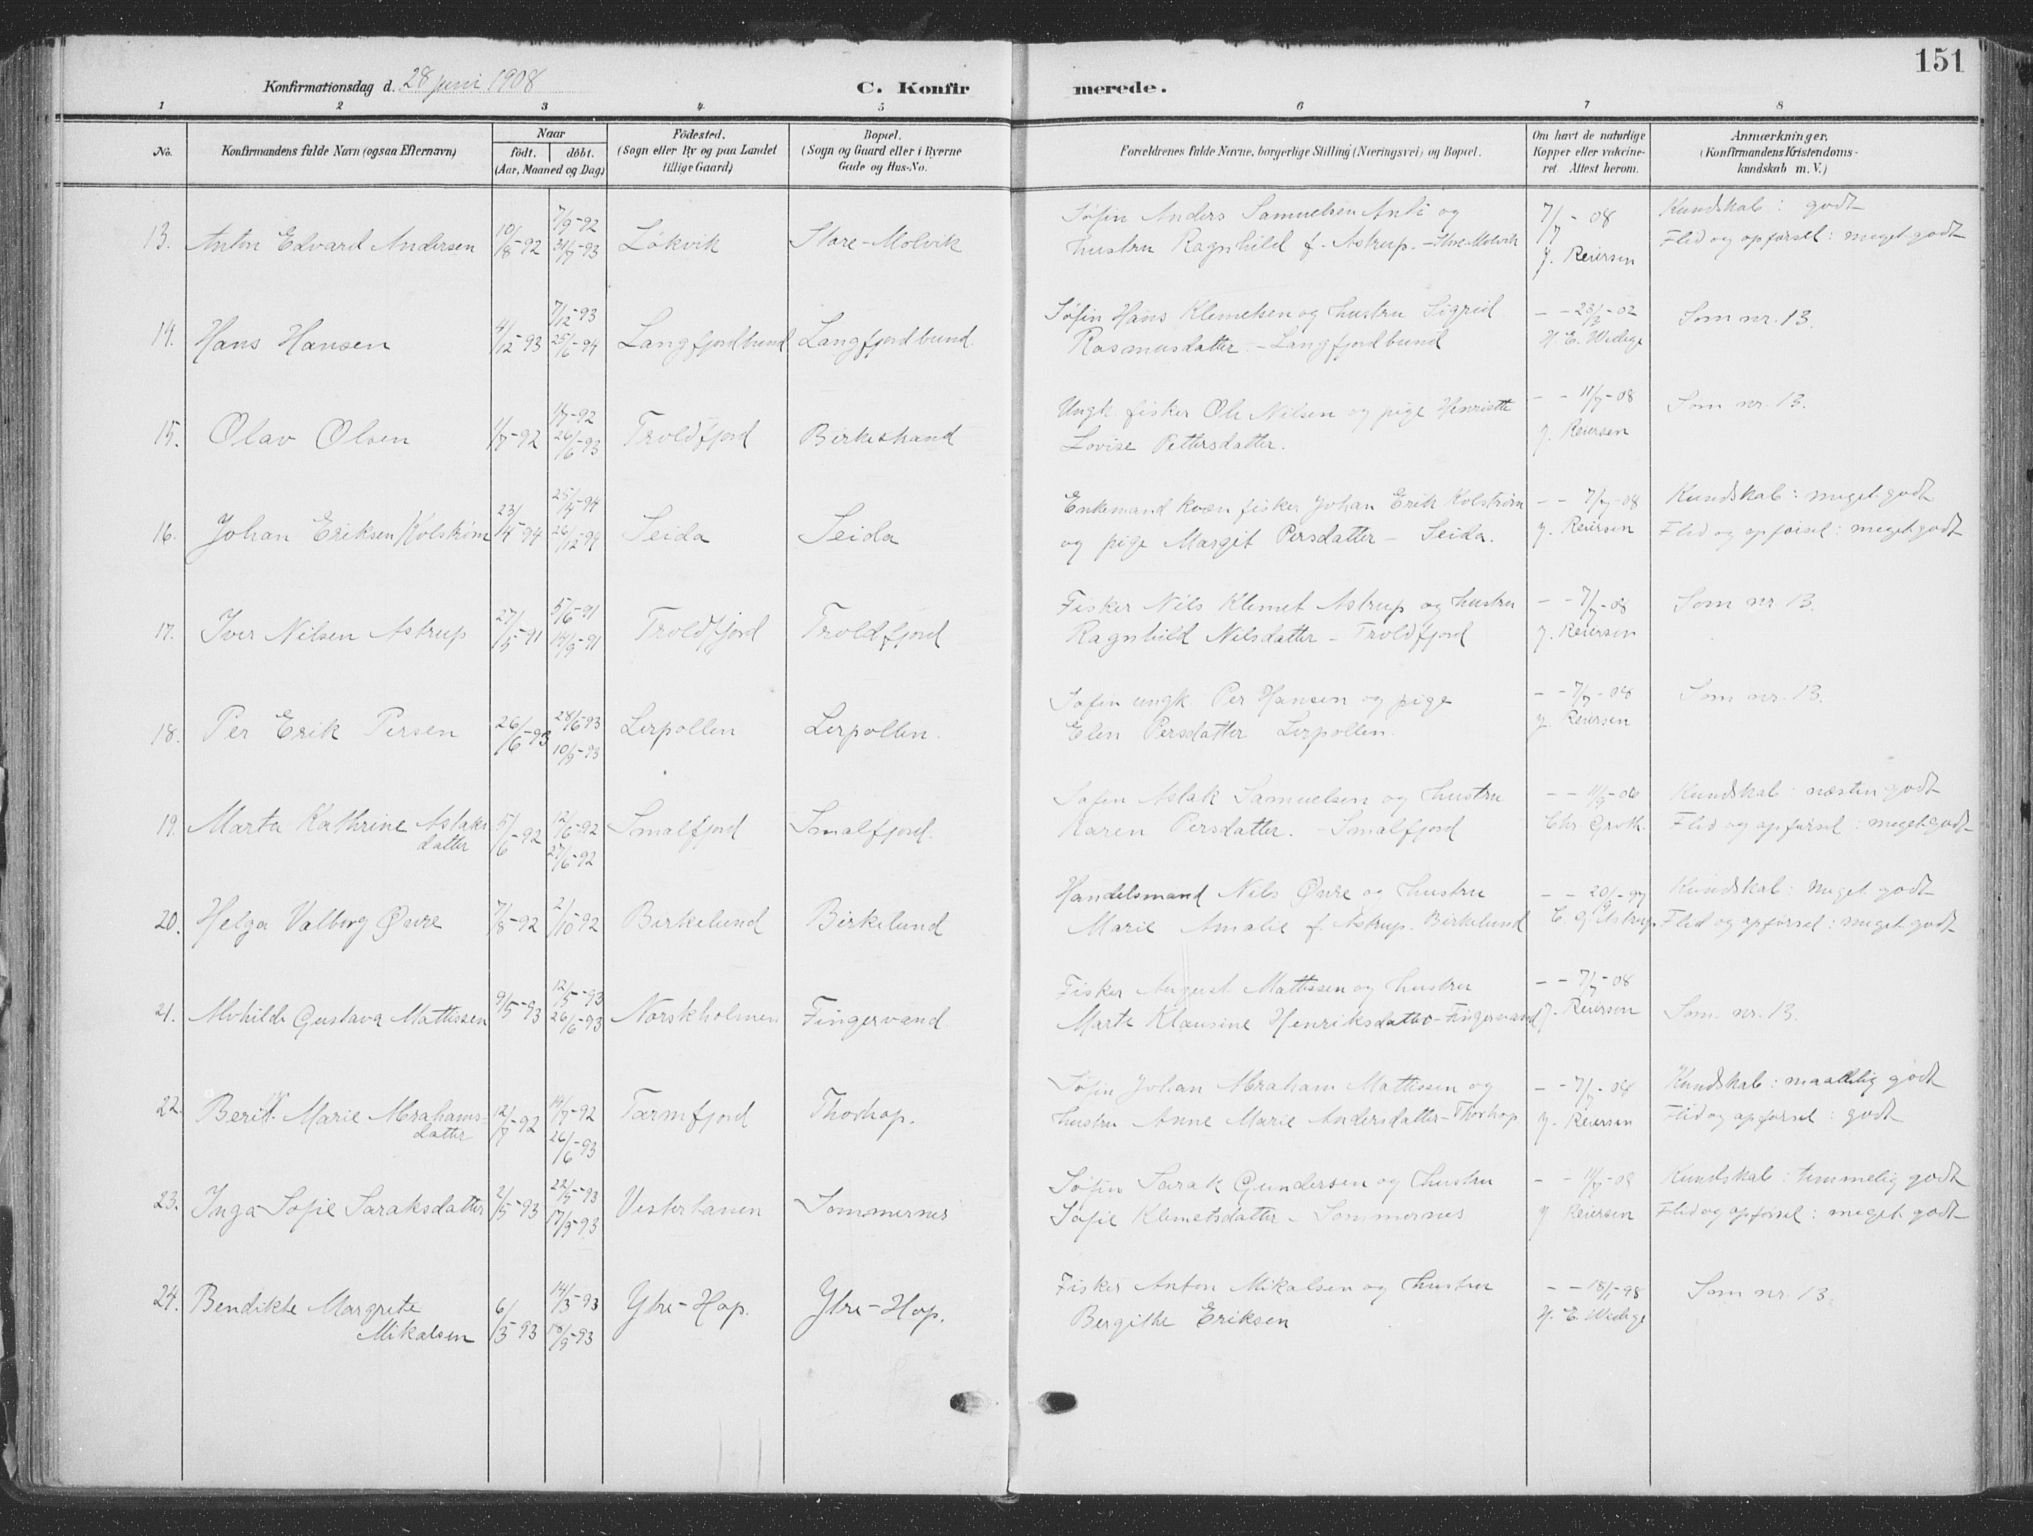 151
Konfirmationsdag d. 28 juni 1908
C. Konfirmerede.
1 2 3 4 5 6 7 8
No.
Konfirmandens fulde Navn (ogsaa Efternavn)
Naar
födt. döbt.
(Aar, Maaned og Dag)
Födested.
(Sogn eller By og paa Landet
tillige Gaard)
Bopæl.
(Sogn og Gaard eller i Byerne
Gade og Hus-No.
Forældrenes fulde Navne, borgerlige Stilling (Næringsvei) og Bopæl.
Om havt de naturlige
Kopper eller vakcine-
ret Attest herom.
Anmærkninger,
(Konfirmandens Kristendoms-
kundskab m. V.)
13. Anton Edvard Andersen 10/8-92 7/9-92 Løkvik Store-Molvik Søfin Anders Samuelsen Anti og 7/7-08 Kundskab: godt
31/7-93 hustru Ragnhild f. Astrup. J. Reiersen Flid og opførsel: meget godt
14. Hans Hansen 4/12-93 7/12-93 Langfjordbund Langfjordbund. Søfin Hans Klemetsen og hustru Sigrid - - 23/3-02 Som nr. 13.
25/6-94 Rasmusdatter. - Langfjordbund H. E. Widege
15. Olav Olsen 1/7-92 Troldfjord Birkestrand Ungk. fisker Ole Nilsen og pige Henriette - - 11/7-08 Som nr. 13.
26/6-93 Lovise Pettersdatter. J. Reiersen
16. Johan Eriksen Kolstrøm 23/4-94 25/4-94 Seida Seida Enkemand kvæn fisker Johan Erik Kolstrøm - - 7/7-08 Kundskab: meget godt
26/12-94 og pige Margit Persdatter - Seida. J. Reiersen Flid og opførsel: meget godt
17. Iver Nilsen Astrup 27/5-91 5/6-91 Troldfjord Troldfjord Fisker Nils Klemet Astrup og hustru - - 7/7-08 Som nr 13.
14/9-91 Ragnhild Nilsdatter - Troldfjord J. Reiersen
18. Per Erik Persen 26/6-93 28/6-93 Lerpollen Lerpollen. Søfin ungk. Per Hansen og pige - - 7/7-08 Som nr. 13.
10/9-93 Elen Persdatter Lerpollen. J. Reiersen
19. Marta Kathrine Aslaks 5/6-92 12/6-92 Smalfjord Smalfjord. Søfin Aslak Samuelsen og hustru Kundskab: næsten godt
datter 27/6-92 Karen Persdatter. - Smalfjord Chr Groth. Flid og opførsel: meget godt
20. Helga Valborg Øvre 7/8-92 2/10-92 Birkelund Birkelund Handelsmand Nils Øvre og hustru Kundskab: meget godt
Marie Amalie f. Astrup. Birkelund Flid og opførsel: meget godt
21. Alvhilde Gustava Mathisen 9/5-93 12/5-93 Norskholmen Fingervand Fisker August Mathisen og hustru - - 7/7-08
26/6-93 Marte Klausine Henriksdatter - Fingervand J. Reiersen Som. nr. 13.
22. Berit Marie Abrahams- 12/7-92 14/7-92 Tarmfjord Thorhop. Søfin Johan Abraham Mathisen og - - 7/7-08 Kundskab: maadelig godt
datter 26/6-93 hustru Anne Marie Andersdatter - Thorhop J. Reiersen Flid og opførsel: godt
23. Inga Sofie Saraksdatter 2/5-93 Vestertanen Sommernes Søfin Sarak Gundersen og hustru - - 11/7-08 Kundskab: temmelig godt
17/9-93 Sofie Klemetsdatter - Sommernes J Reiersen Flid og opførsel: meget godt
24. Bendikte Margrete 6/3-93 14/3-93 Ytre-Hop. Ytre-Hop. Fisker Anton Mikalsen og hustru Som nr. 13.
Mikalsen 18/9-93 Bergithe Eriksen H. E. Widege